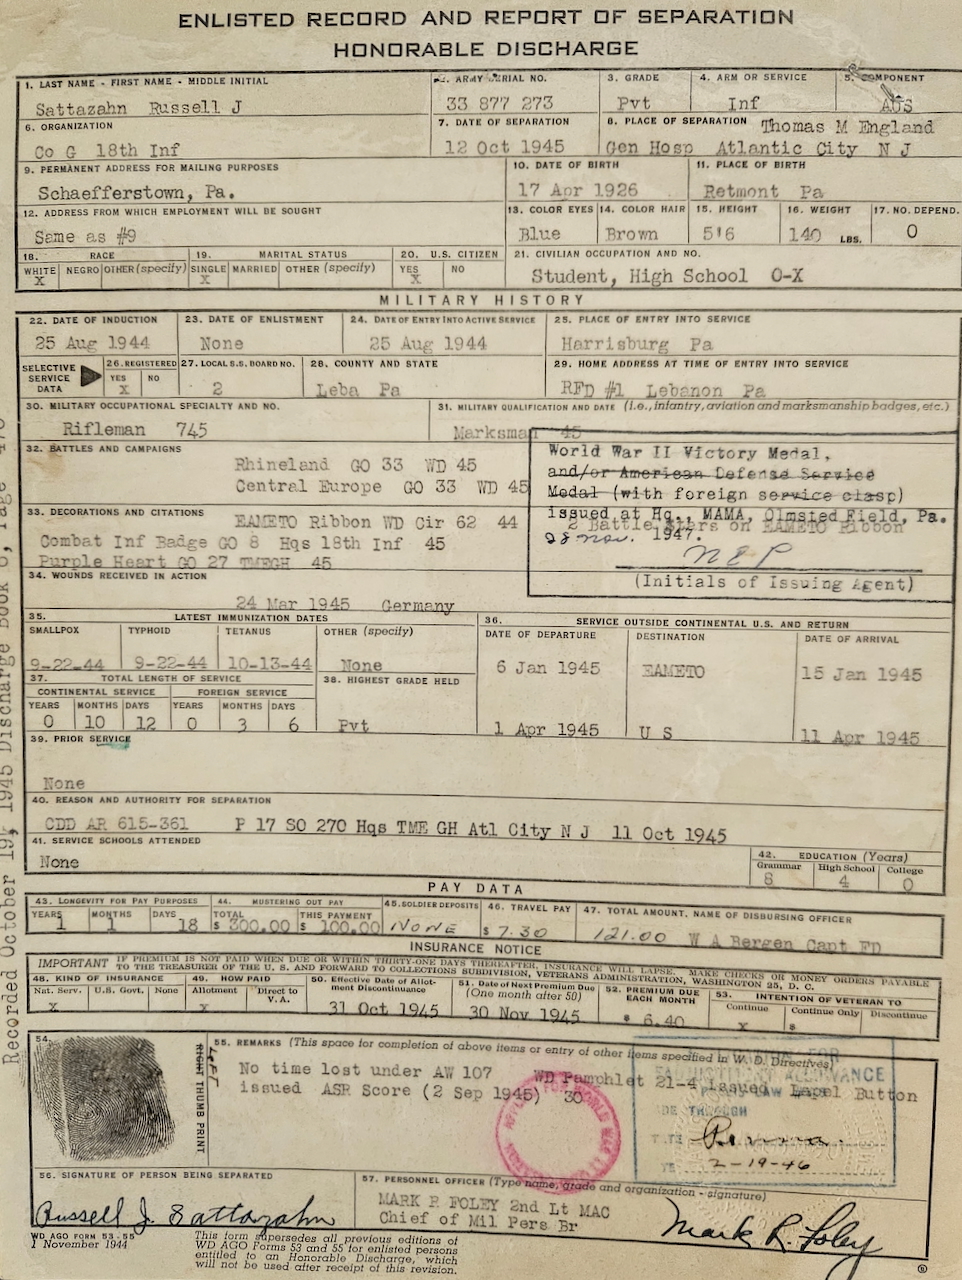 ENLISTED RECORD AND REPORT OF SEPARATION
HONORABLE DISCHARGE
1. LAST NAME - FIRST NAME - MIDDLE INITIAL
Sattazahn Russell J
2. ARMY SERIAL NO.
33 877 273
3. GRADE
Pvt
4. ARM OR SERVICE
Inf
5. COMPONENT
AUS
6. ORGANIZATION
Co G 18th Inf
7. DATE OF SEPARATION
12 Oct 1945
8. PLACE OF SEPARATION Thomas M England
Gen Hosp Atlantic City N J
9. PERMANENT ADDRESS FOR MAILING PURPOSES
Schaefferstown, Pa.
10. DATE OF BIRTH
17 Apr 1926
11. PLACE OF BIRTH
Retmont Pa
12. ADDRESS FROM WHICH EMPLOYMENT WILL BE SOUGHT
Same as #9
13. COLOR EYES
Blue
14. COLOR HAIR
Brown
15. HEIGHT
5'6
16. WEIGHT
140 LBS.
17. NO. DEPEND.
0
18. RACE
WHITE NEGRO OTHER (specify)
X
19. MARITAL STATUS
SINGLE MARRIED OTHER (specify)
X
20. U.S. CITIZEN
YES NO
X
21. CIVILIAN OCCUPATION AND NO.
Student, High School 0-X
MILITARY HISTORY
22. DATE OF INDUCTION
25 Aug 1944
23. DATE OF ENLISTMENT
None
24. DATE OF ENTRY INTO ACTIVE SERVICE
25 Aug 1944
25. PLACE OF ENTRY INTO SERVICE
Harrisburg Pa
SELECTIVE SERVICE DATA
26. REGISTERED
YES NO
X
27. LOCAL S.S. BOARD NO.
2
28. COUNTY AND STATE
Leba Pa
29. HOME ADDRESS AT TIME OF ENTRY INTO SERVICE
RFD #1 Lebanon Pa
30. MILITARY OCCUPATIONAL SPECIALTY AND NO.
Rifleman 745
31. MILITARY QUALIFICATION AND DATE (i.e., infantry, aviation and marksmanship badges, etc.)
Marksman 45
32. BATTLES AND CAMPAIGNS
Rhineland GO 33 WD 45
Central Europe GO 33 WD 45
World War II Victory Medal,
and/or American Defense Service
Medal (with foreign service clasp)
issued at Hq., MAMA, Olmsted Field, Pa.
28 Nov. 1947.
NEP
(Initials of Issuing Agent)
33. DECORATIONS AND CITATIONS
EAMETO Ribbon WD Cir 62 44
2 Battle Stars on EAMETO Ribbon
Combat Inf Badge GO 8 Hqs 18th Inf 45
Purple Heart GO 27 TMEGH 45
34. WOUNDS RECEIVED IN ACTION
24 Mar 1945 Germany
35. LATEST IMMUNIZATION DATES
SMALLPOX TYPHOID TETANUS OTHER (specify)
9-22-44 9-22-44 10-13-44 None
36. SERVICE OUTSIDE CONTINENTAL U.S. AND RETURN
DATE OF DEPARTURE DESTINATION DATE OF ARRIVAL
6 Jan 1945 EAMETO 15 Jan 1945
1 Apr 1945 U S 11 Apr 1945
37. TOTAL LENGTH OF SERVICE
CONTINENTAL SERVICE FOREIGN SERVICE
YEARS MONTHS DAYS YEARS MONTHS DAYS
0 10 12 0 3 6
38. HIGHEST GRADE HELD
Pvt
39. PRIOR SERVICE
None
40. REASON AND AUTHORITY FOR SEPARATION
CDD AR 615-361 P 17 SO 270 Hqs TME GH Atl City N J 11 Oct 1945
41. SERVICE SCHOOLS ATTENDED
None
42. EDUCATION (Years)
Grammar High School College
8 4 0
PAY DATA
43. LONGEVITY FOR PAY PURPOSES
YEARS MONTHS DAYS
1 1 18
44. MUSTERING OUT PAY
TOTAL THIS PAYMENT
$ 300.00 $ 100.00
45. SOLDIER DEPOSITS
NONE
46. TRAVEL PAY
$ 7.30
47. TOTAL AMOUNT, NAME OF DISBURSING OFFICER
121.00 W A Bergen Capt FD
INSURANCE NOTICE
IMPORTANT IF PREMIUM IS NOT PAID WHEN DUE OR WITHIN THIRTY-ONE DAYS THEREAFTER, INSURANCE WILL LAPSE. MAKE CHECKS OR MONEY ORDERS PAYABLE
TO THE TREASURER OF THE U. S. AND FORWARD TO COLLECTIONS SUBDIVISION, VETERANS ADMINISTRATION, WASHINGTON 25, D. C.
48. KIND OF INSURANCE
Nat. Serv. U.S. Govt. None
X
49. HOW PAID
Allotment Direct to V. A.
X
50. Effective Date of Allotment Discontinuance
31 Oct 1945
51. Date of Next Premium Due (One month after 50)
30 Nov 1945
52. PREMIUM DUE EACH MONTH
$ 6.40
53. INTENTION OF VETERAN TO
Continue Continue Only Discontinue
X $
54.
RIGHT THUMB PRINT
Left
55. REMARKS (This space for completion of above items or entry of other items specified in W. D. Directives)
No time lost under AW 107 WD Pamphlet 21-4 Issued Lapel Button
issued ASR Score (2 Sep 1945) 30
Penna.
2-19-46
56. SIGNATURE OF PERSON BEING SEPARATED
Russell J. Sattazahn
57. PERSONNEL OFFICER (Type name, grade and organization - signature)
MARK R FOLEY 2nd Lt MAC
Chief of Mil Pers Br
Mark R. Foley
WD AGO FORM 53-55
1 November 1944
This form supersedes all previous editions of
WD AGO Forms 53 and 55 for enlisted persons
entitled to an Honorable Discharge, which
will not be used after receipt of this revision.
Recorded October 19, 1945 Discharge Book 6, Page 478